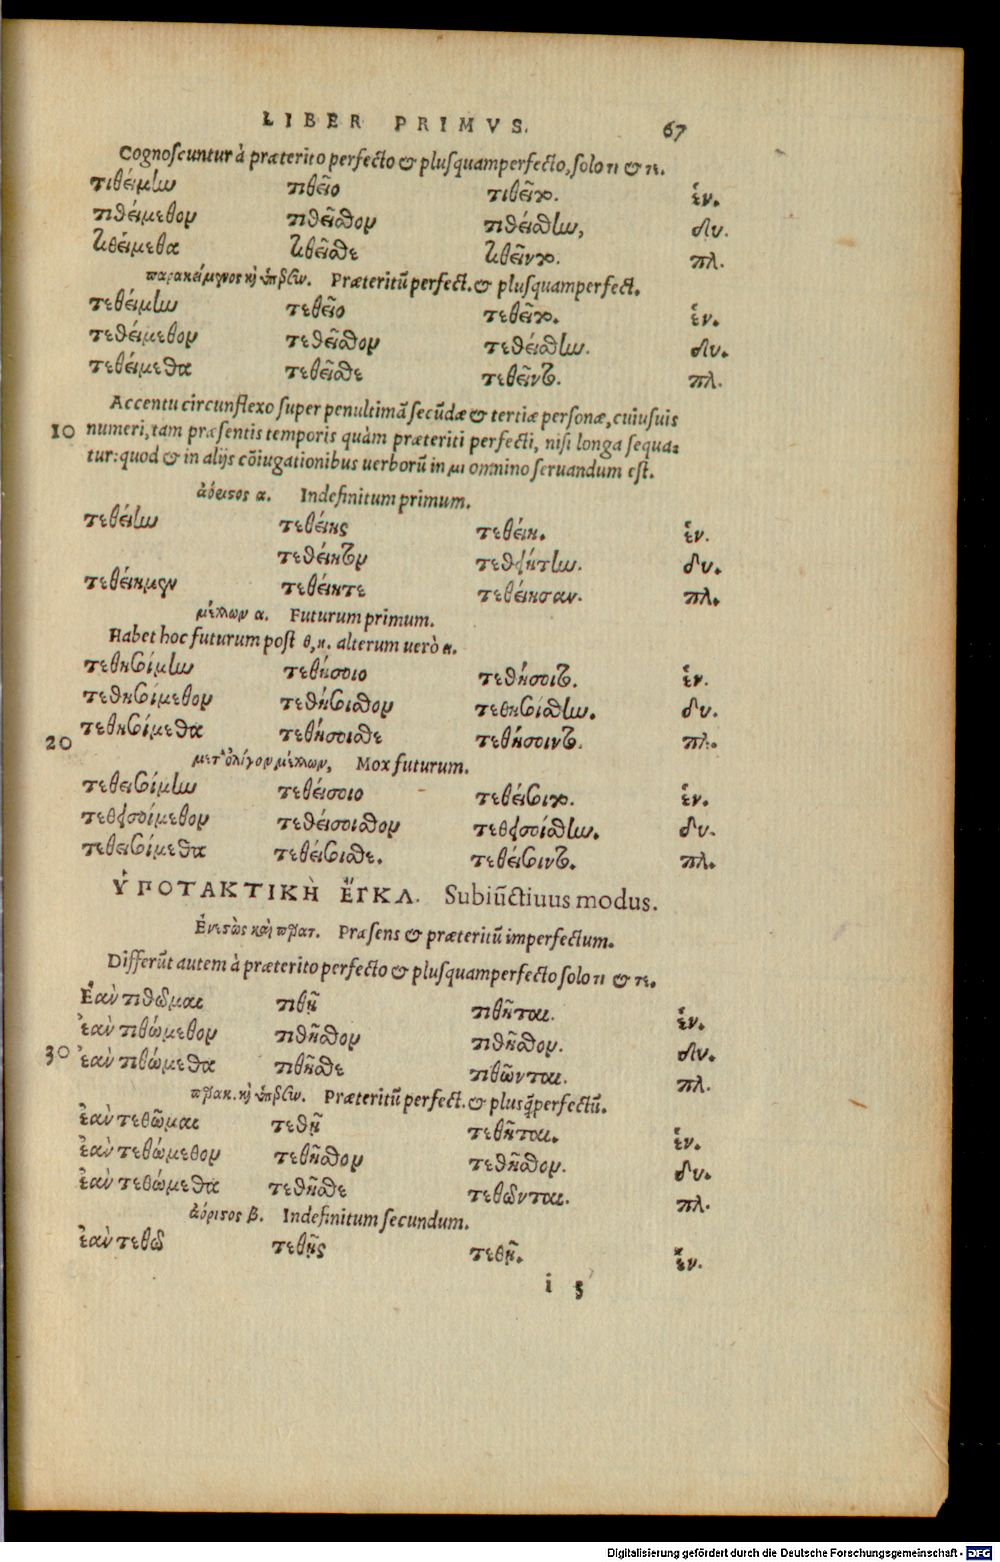 LIBER PRIMVS. 67
Cognoscuntur à præterito perfecto & plusquamperfecto, solo τι & τε.
τιθείμην τιθεῖο τιθεῖτο. ἑν.
τιθείμεθον τιθεῖσθον τιθείσθην, δυ.
τιθείμεθα τιθεῖσθε τιθεῖντο. πλ.
παρακείμενος κὶ ὑπερσυν. Præteritũ perfect. & plusquamperfect.
τεθείμην τεθεῖο τεθεῖτο. ἑν.
τεθείμεθον τεθεῖσθον τεθείσθην. δυ.
τεθείμεθα τεθεῖσθε τεθεῖντο. πλ.
Accentu circunflexo super penultimã secũdæ & tertiæ personæ, cuiusuis
10 numeri, tam præsentis temporis quàm præteriti perfecti, nisi longa sequa-
tur: quod & in alijs cõiugationibus uerborũ in μι omnino seruandum est.
ἀόριστος α. Indefinitum primum.
τεθείην τεθείης τεθείη. ἑν.
τεθείητον τεθειήτην. δυ.
τεθείημεν τεθείητε τεθείησαν. πλ.
μέλλων α. Futurum primum.
Habet hoc futurum post θ, η. alterum uerò ει.
τεθησοίμην τεθήσοιο τεθήσοιτο. ἑν.
τεθησοίμεθον τεθήσοισθον τεθησοίσθην. δυ.
20 τεθησοίμεθα τεθήσοισθε τεθήσοιντο. πλ.
μετ' ὀλίγον μέλλων, Mox futurum.
τεθεισοίμην τεθείσοιο τεθείσοιτο. ἑν.
τεθεισοίμεθον τεθείσοισθον τεθεισοίσθην. δυ.
τεθεισοίμεθα τεθείσοισθε. τεθείσοιντο. πλ.
ὙΠΟΤΑΚΤΙΚῊ ἜΓΚΛ. Subiũctiuus modus.
Ἐνεστὼς καὶ παρατ. Præsens & præteritũ imperfectum.
Differũt autem à præterito perfecto & plusquamperfecto solo τι & τε.
Ἐὰν τιθῶμαι τιθῇ τιθῆται. ἑν.
ἐὰν τιθώμεθον τιθῆσθον τιθῆσθον. δυ.
30 ἐὰν τιθώμεθα τιθῆσθε τιθῶνται. πλ.
παρακ. κὶ ὑπερσυν. Præteritũ perfect. & plusq̃perfectũ.
ἐὰν τεθῶμαι τεθῇ τεθῆται. ἑν.
ἐὰν τεθώμεθον τεθῆσθον τεθῆσθον. δυ.
ἐὰν τεθώμεθα τεθῆσθε τεθῶνται. πλ.
ἀόριστος β. Indefinitum secundum.
ἐὰν τεθῶ τεθῇς τεθῇ. ἑν.
i 5
Digitalisierung gefördert durch die Deutsche Forschungsgemeinschaft - DFG